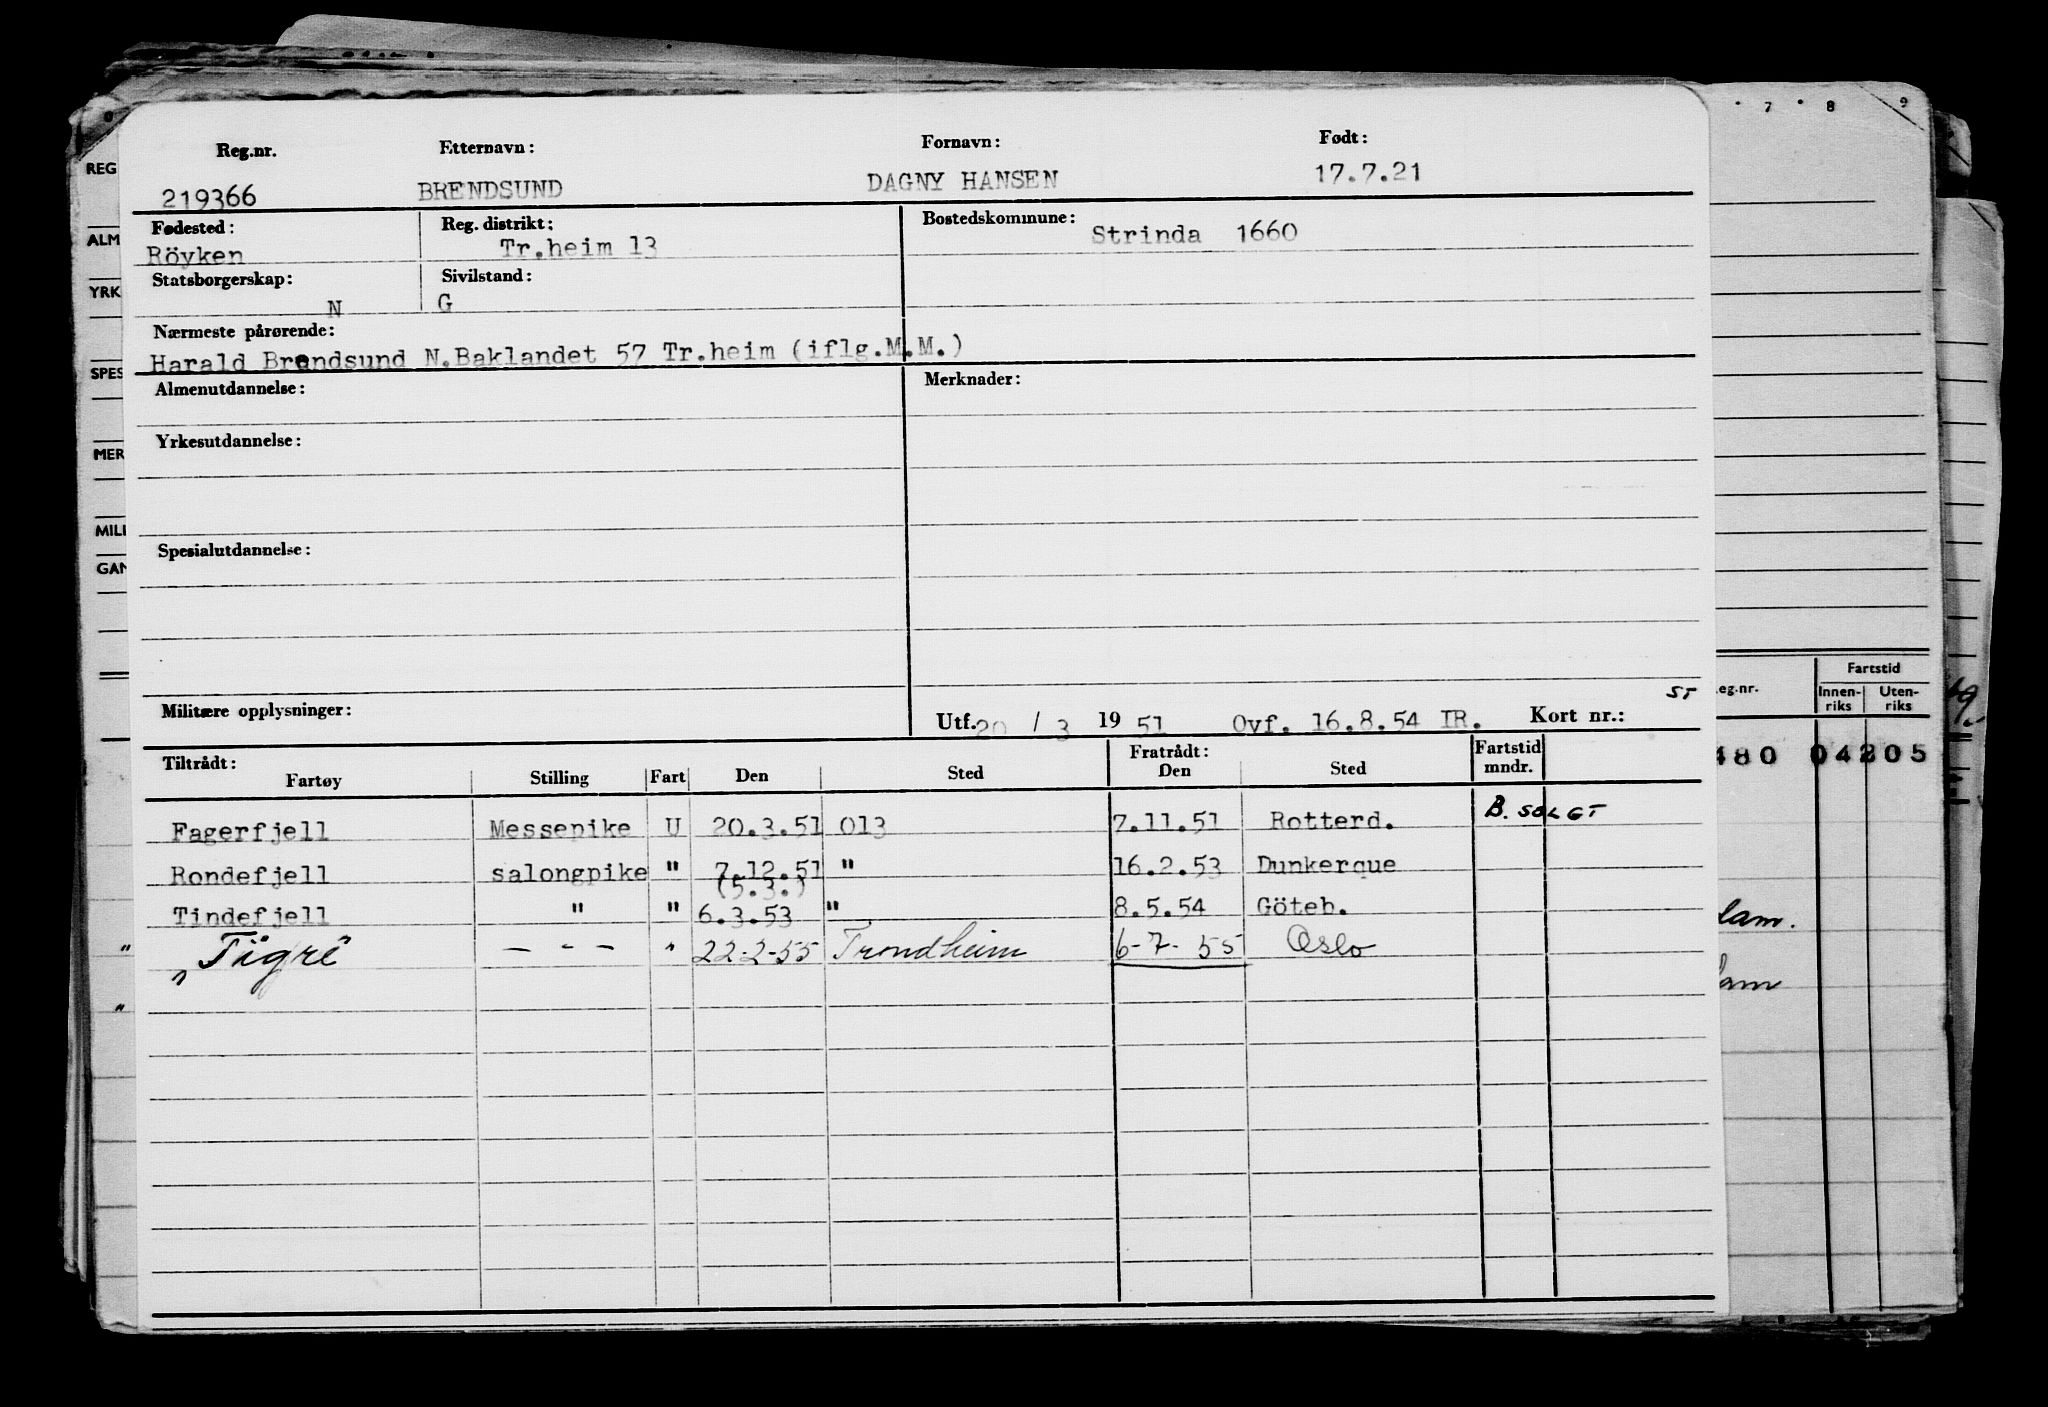 7 8 9
Reg.nr. Etternavn: Fornavn: Født:
219366 BRENDSUND DAGNY HANSEN 17.7.21
REG
Fødested: Reg. distrikt: Bostedskommune:
Röyken Tr.heim 13 Strinda 1660
ALM
Statsborgerskap: Sivilstand:
N G
YRK
Nærmeste pårørende:
Harald Brendsund N.Baklandet 57 Tr.heim (iflg.M.M.)
SPES
Almenutdannelse: Merknader:
Yrkesutdannelse:
MER
MILI
Spesialutdannelse:
GAN
Militære opplysninger: Utf. 20 / 3 19 51 Ovf. 16.8.54 IR. Kort nr.: ST
eg.nr. Fartstid
Innen-riks Uten-riks
480 04205
Tiltrådt: Fratrådt: Fartstid
Fartøy Stilling Fart Den Sted Den Sted mndr.
Fagerfjell Messepike U 20.3.51 013 7.11.51 Rotterd. B. SOLGT
Rondefjell salongpike " 7.12.51 " 16.2.53 Dunkerque
(5.3.)
Tindefjell " " 6.3.53 " 8.5.54 Göteb.
"Tigre" - - - " 22-2-55 Trondheim 6-7-55 Oslo
dam.
dam